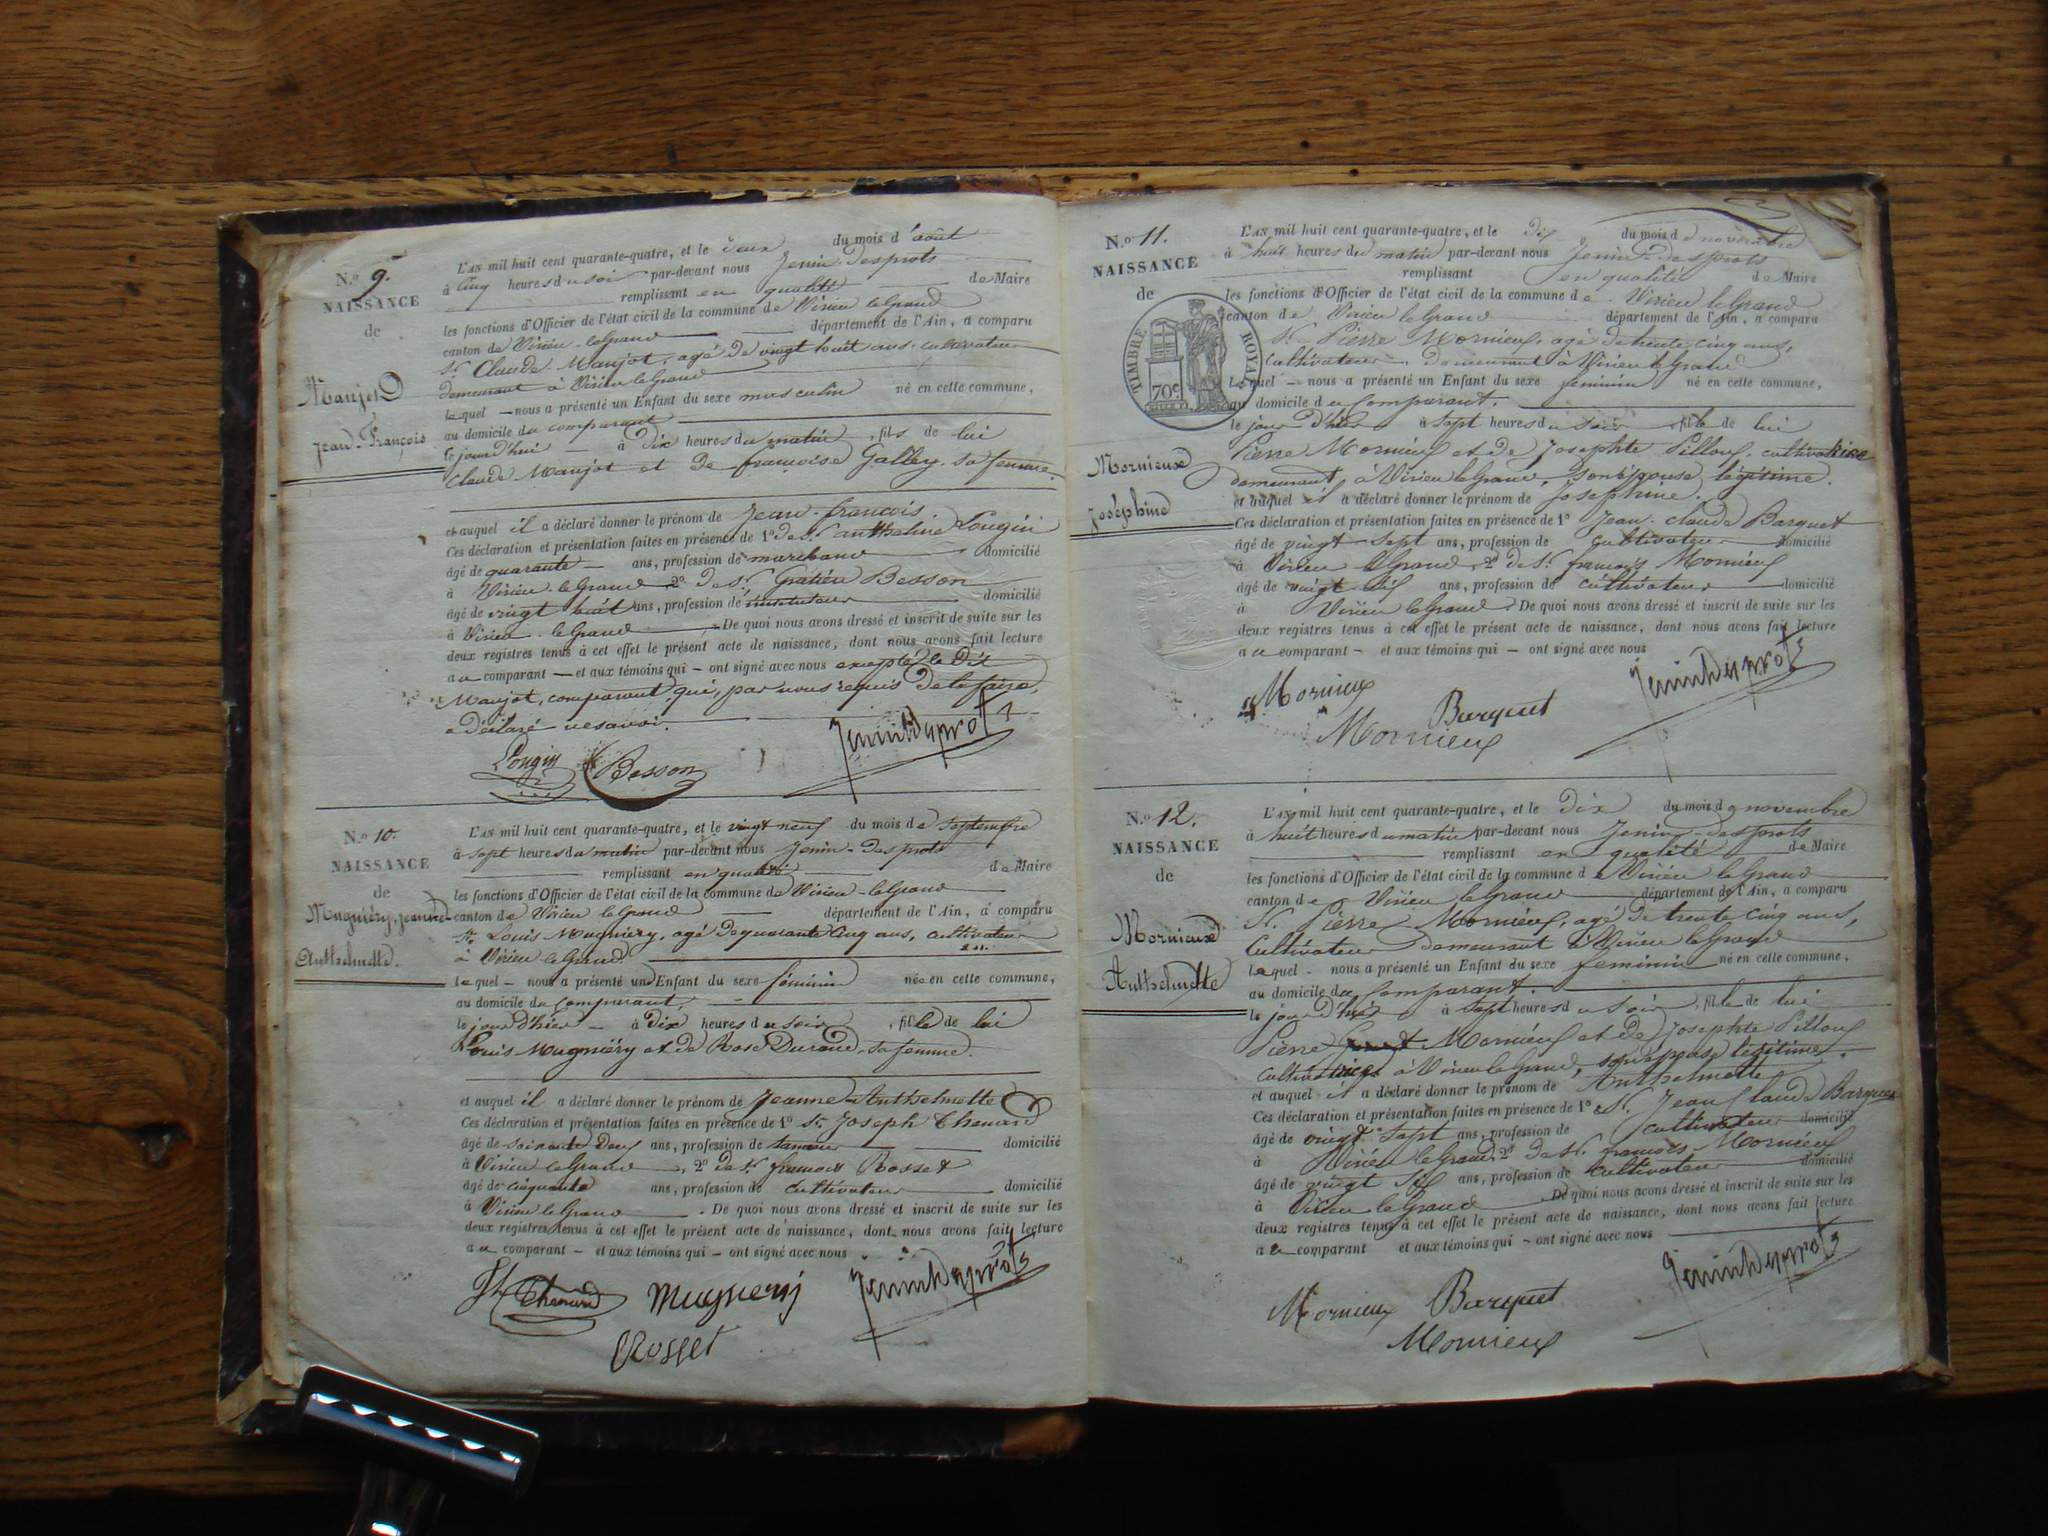 N.o 9.
NAISSANCE
de
Maujot
Jean-François
L'AN mil huit cent quarante-quatre, et le deux du mois d'août
à cinq heures du soir par-devant nous Jenin-desprots
remplissant en qualité de Maire
les fonctions d'Officier de l'état civil de la commune de Virieu le Grand
canton de Virieu-le Grand département de l'Ain, a comparu
Sr. Claude Maujot, agé de vingt huit ans, cultivateur
demeurant à Virieu le Grand
lequel — nous a présenté un Enfant du sexe masculin né en cette commune,
au domicile du comparant
le jourd'hui — à dix heures du matin, fils de lui
Claude Maujot et de françoise Galley, sa femme.
et auquel il a déclaré donner le prénom de Jean-françois.
Ces déclaration et présentation faites en présence de 1o de Sr. anthelme Pougin
âgé de quarante — ans, profession de marchand domicilié
à Virieu-le Grand 2o de Sr. Gratien Besson
âgé de vingt huit ans, profession de instituteur domicilié
à Virieu-le Grand. De quoi nous avons dressé et inscrit de suite sur les
deux registres tenus à cet effet le présent acte de naissance, dont nous avons fait lecture
au comparant — et aux témoins qui — ont signé avec nous excepté le dit
Maujot, comparant qui, par nous requis de le faire,
a déclaré ne savoir.
Pougin Besson Jenindesprots
N.o 10.
NAISSANCE
de
Mugniéry, Jeanne
Anthelmette.
L'AN mil huit cent quarante-quatre, et le vingt neuf du mois de Septembre
à sept heures du matin par-devant nous Jenin-desprots
remplissant en qualité de Maire
les fonctions d'Officier de l'état civil de la commune de Virieu-le Grand
canton de Virieu le Grand département de l'Ain, a comparu
Sr. Louis Mugniéry, agé de quarante cinq ans, cultivateur
à Virieu le Grand.
lequel — nous a présenté un Enfant du sexe féminin née en cette commune,
au domicile du comparant,
le jour d'hier — à dix heures du soir, fille de lui
Louis Mugniéry et de Rose Durand, sa femme.
et auquel il a déclaré donner le prénom de Jeanne Anthelmette
Ces déclaration et présentation faites en présence de 1o Sr. Joseph Thenard
âgé de soixante deux ans, profession de tanneur domicilié
à Virieu le Grand, 2o de Sr. francois Rosset
âgé de cinquante ans, profession de cultivateur domicilié
à Virieu le Grand. De quoi nous avons dressé et inscrit de suite sur les
deux registres tenus à cet effet le présent acte de naissance, dont nous avons fait lecture
au comparant — et aux témoins qui — ont signé avec nous
Thenard Mugnery Jenindesprots
Rosset
N.o 11.
NAISSANCE
de
TIMBRE ROYAL
70c
Mornieux
Joséphine
L'AN mil huit cent quarante-quatre, et le dix du mois de novembre
à huit heures du matin par-devant nous Jenin-desprots
remplissant en qualité de Maire
les fonctions d'Officier de l'état civil de la commune de Virieu le Grand
canton de Virieu le Grand département de l'Ain, a comparu
Sr. Pierre Mornieux, agé de trente cinq ans,
cultivateur demeurant à Virieu le Grand
Lequel — nous a présenté un Enfant du sexe féminin né en cette commune,
au domicile du comparant.
le jour d'hier à sept heures du soir, fille de lui
Pierre Mornieux et de Josephte Pilloux, cultivatrice
demeurant à Virieu le Grand, son épouse légitime.
et auquel il a déclaré donner le prénom de Joséphine.
Ces déclaration et présentation faites en présence de 1o Jean-claude Barquet
âgé de vingt-sept ans, profession de cultivateur domicilié
à Virieu le Grand, 2o de Sr. françois Mornieux
âgé de vingt six ans, profession de cultivateur domicilié
à Virieu le Grand. De quoi nous avons dressé et inscrit de suite sur les
deux registres tenus à cet effet le présent acte de naissance, dont nous avons fait lecture
au comparant — et aux témoins qui — ont signé avec nous
Mornieux Barquet Jenindesprots
Mornieux
N.o 12.
NAISSANCE
de
Mornieux
Anthelmette
L'AN mil huit cent quarante-quatre, et le dix du mois de novembre
à huit heures du matin par-devant nous Jenin-desprots
remplissant en qualité de Maire
les fonctions d'Officier de l'état civil de la commune de Virieu le Grand
canton de Virieu le Grand département de l'Ain, a comparu
Sr. Pierre Mornieux, agé de trente cinq ans,
Cultivateur demeurant à Virieu le Grand
Lequel — nous a présenté un Enfant du sexe féminin né en cette commune,
au domicile du comparant.
le jour d'hier à sept heures du soir, fille de lui
Pierre Mornieux et de Josephte Pilloux
cultivatrice à Virieu le Grand, son épouse légitime.
et auquel il a déclaré donner le prénom de Anthelmette
Ces déclaration et présentation faites en présence de 1o Sr. Jean Claude Barquet
âgé de vingt-sept ans, profession de cultivateur domicilié
à Virieu le Grand, 2o de Sr. françois Mornieux
âgé de vingt six ans, profession de cultivateur domicilié
à Virieu le Grand De quoi nous avons dressé et inscrit de suite sur les
deux registres tenus à cet effet le présent acte de naissance, dont nous avons fait lecture
au comparant et aux témoins qui — ont signé avec nous
Mornieux Barquet Jenindesprots
Mornieux